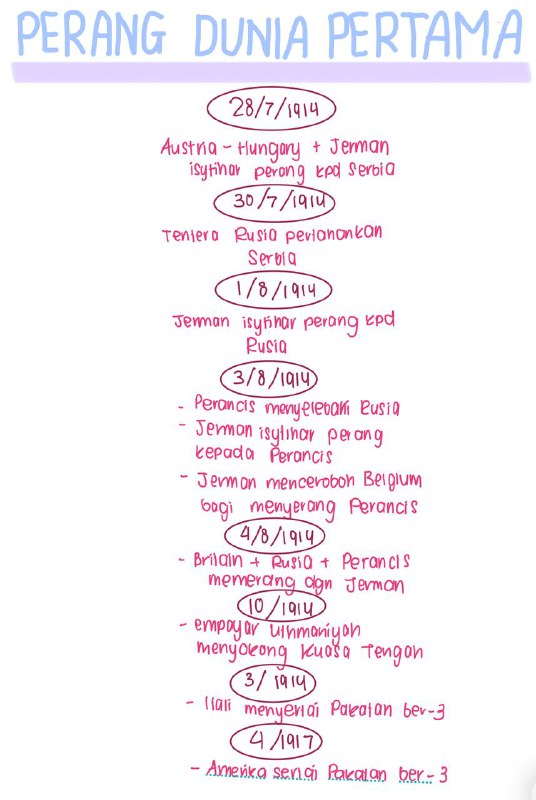 PERANG DUNIA PERTAMA
28/7/1914
Austria - Hungary + Jerman
isytihar perang kpd Serbia
30/7/1914
Tentera Rusia pertahankan
Serbia
1/8/1914
Jerman isytihar perang kpd
Rusia
3/8/1914
- Perancis menyebelahi Rusia
- Jerman isytihar perang
kepada Perancis
- Jerman menceroboh Belgium
bagi menyerang Perancis
4/8/1914
- Britain + Rusia + Perancis
memerang dgn Jerman
10/1914
- empayar Uthmaniyah
menyokong Kuasa Tengah
3/1914
- Itali menyertai Pakatan ber-3
4/1917
- Amerika sertai Pakatan ber-3